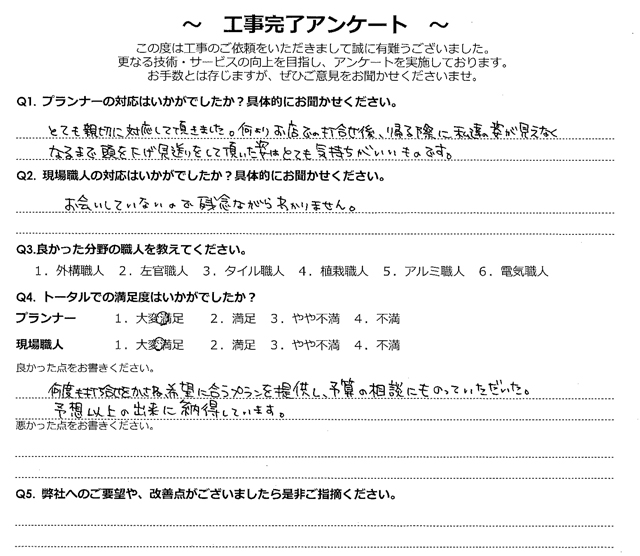 ～ 工事完了アンケート ～
この度は工事のご依頼をいただきまして誠に有難うございました。
更なる技術・サービスの向上を目指し、アンケートを実施しております。
お手数とは存じますが、ぜひご意見をお聞かせくださいませ。
Q1. プランナーの対応はいかがでしたか？具体的にお聞かせください。
とても親切に対応して頂きました。何よりお店での打合せ後、帰る際に私達の姿が見えなく
なるまで頭を下げ見送りをして頂いた姿はとても気持ちがいいものです。
Q2. 現場職人の対応はいかがでしたか？具体的にお聞かせください。
お会いしていないので残念ながらわかりません。
Q3.良かった分野の職人を教えてください。
1．外構職人 2．左官職人 3．タイル職人 4．植栽職人 5．アルミ職人 6．電気職人
Q4. トータルでの満足度はいかがでしたか？
プランナー 1．大変満足 2．満足 3．やや不満 4．不満
現場職人 1．大変満足 2．満足 3．やや不満 4．不満
良かった点をお書きください。
何度も打合せをかさね、希望に合うプランを提供し、予算の相談にものっていただいた。
予想以上の出来に納得しています。
悪かった点をお書きください。
Q5. 弊社へのご要望や、改善点がございましたら是非ご指摘ください。